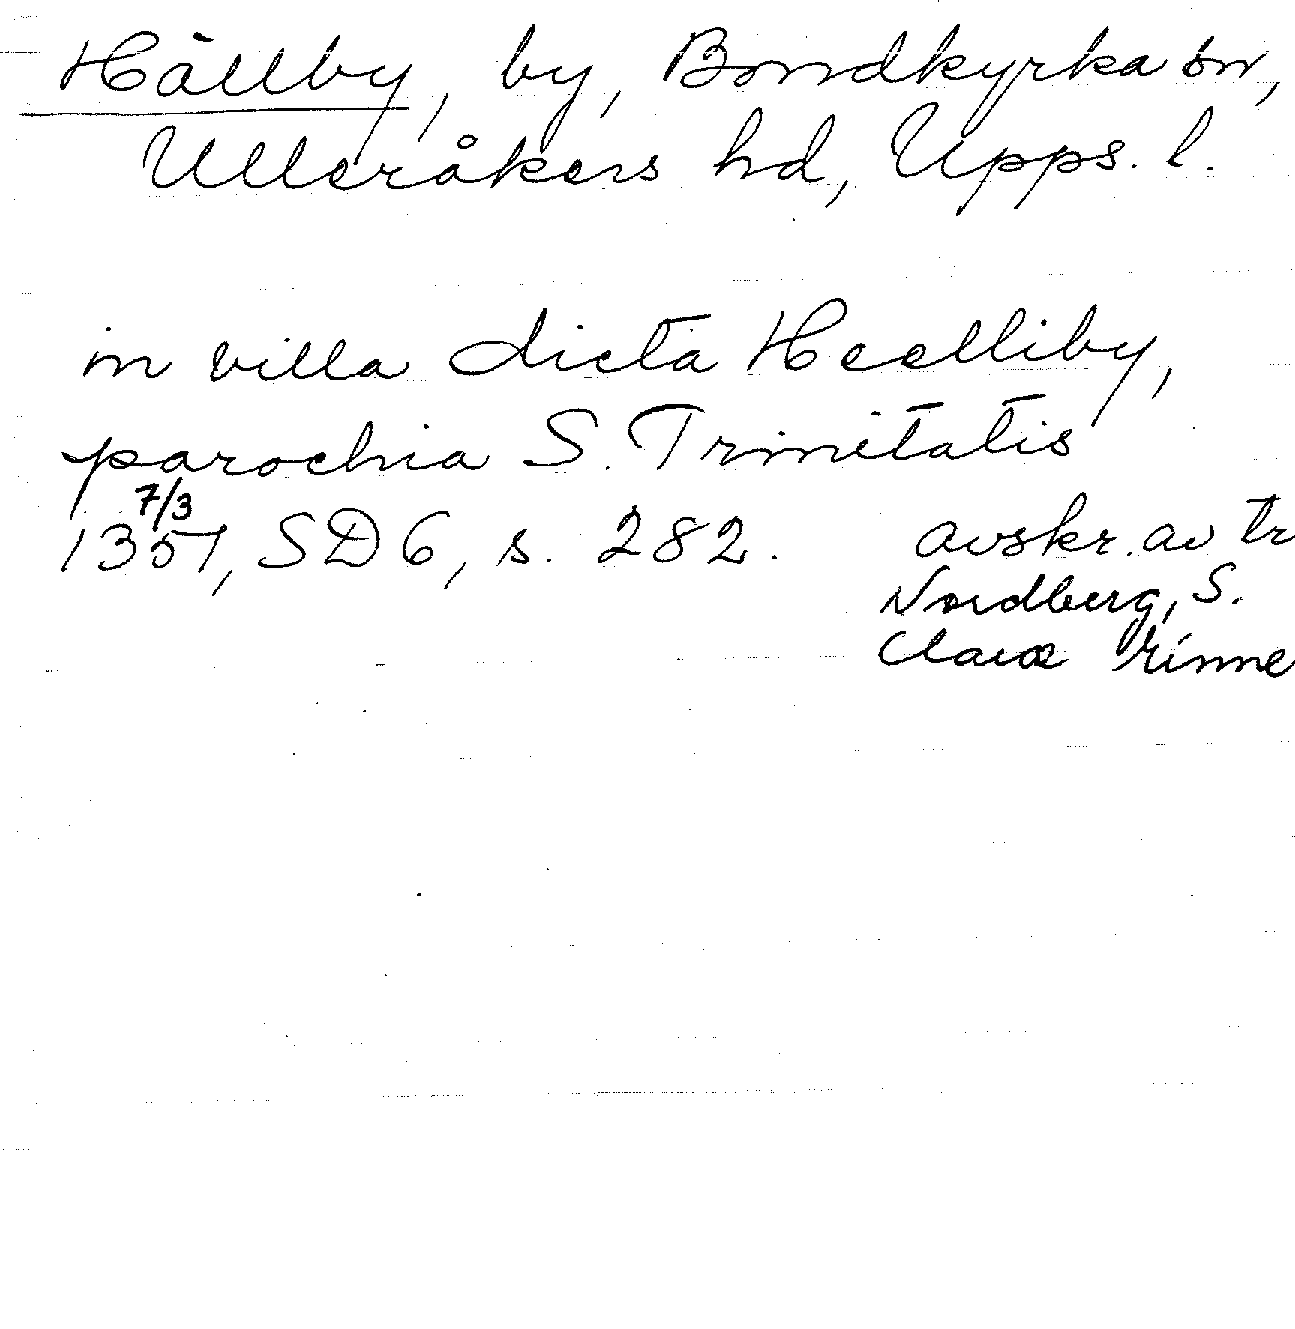 Hällby, by, Bondkyrka sn,
Ulleråkers hd, Upps. l.
in villa dicta Heelliby,
parochia S. Trinitatis
7/3
1351, SD 6, s. 282. avskr. av tr
Nordberg, S.
Claræ minne